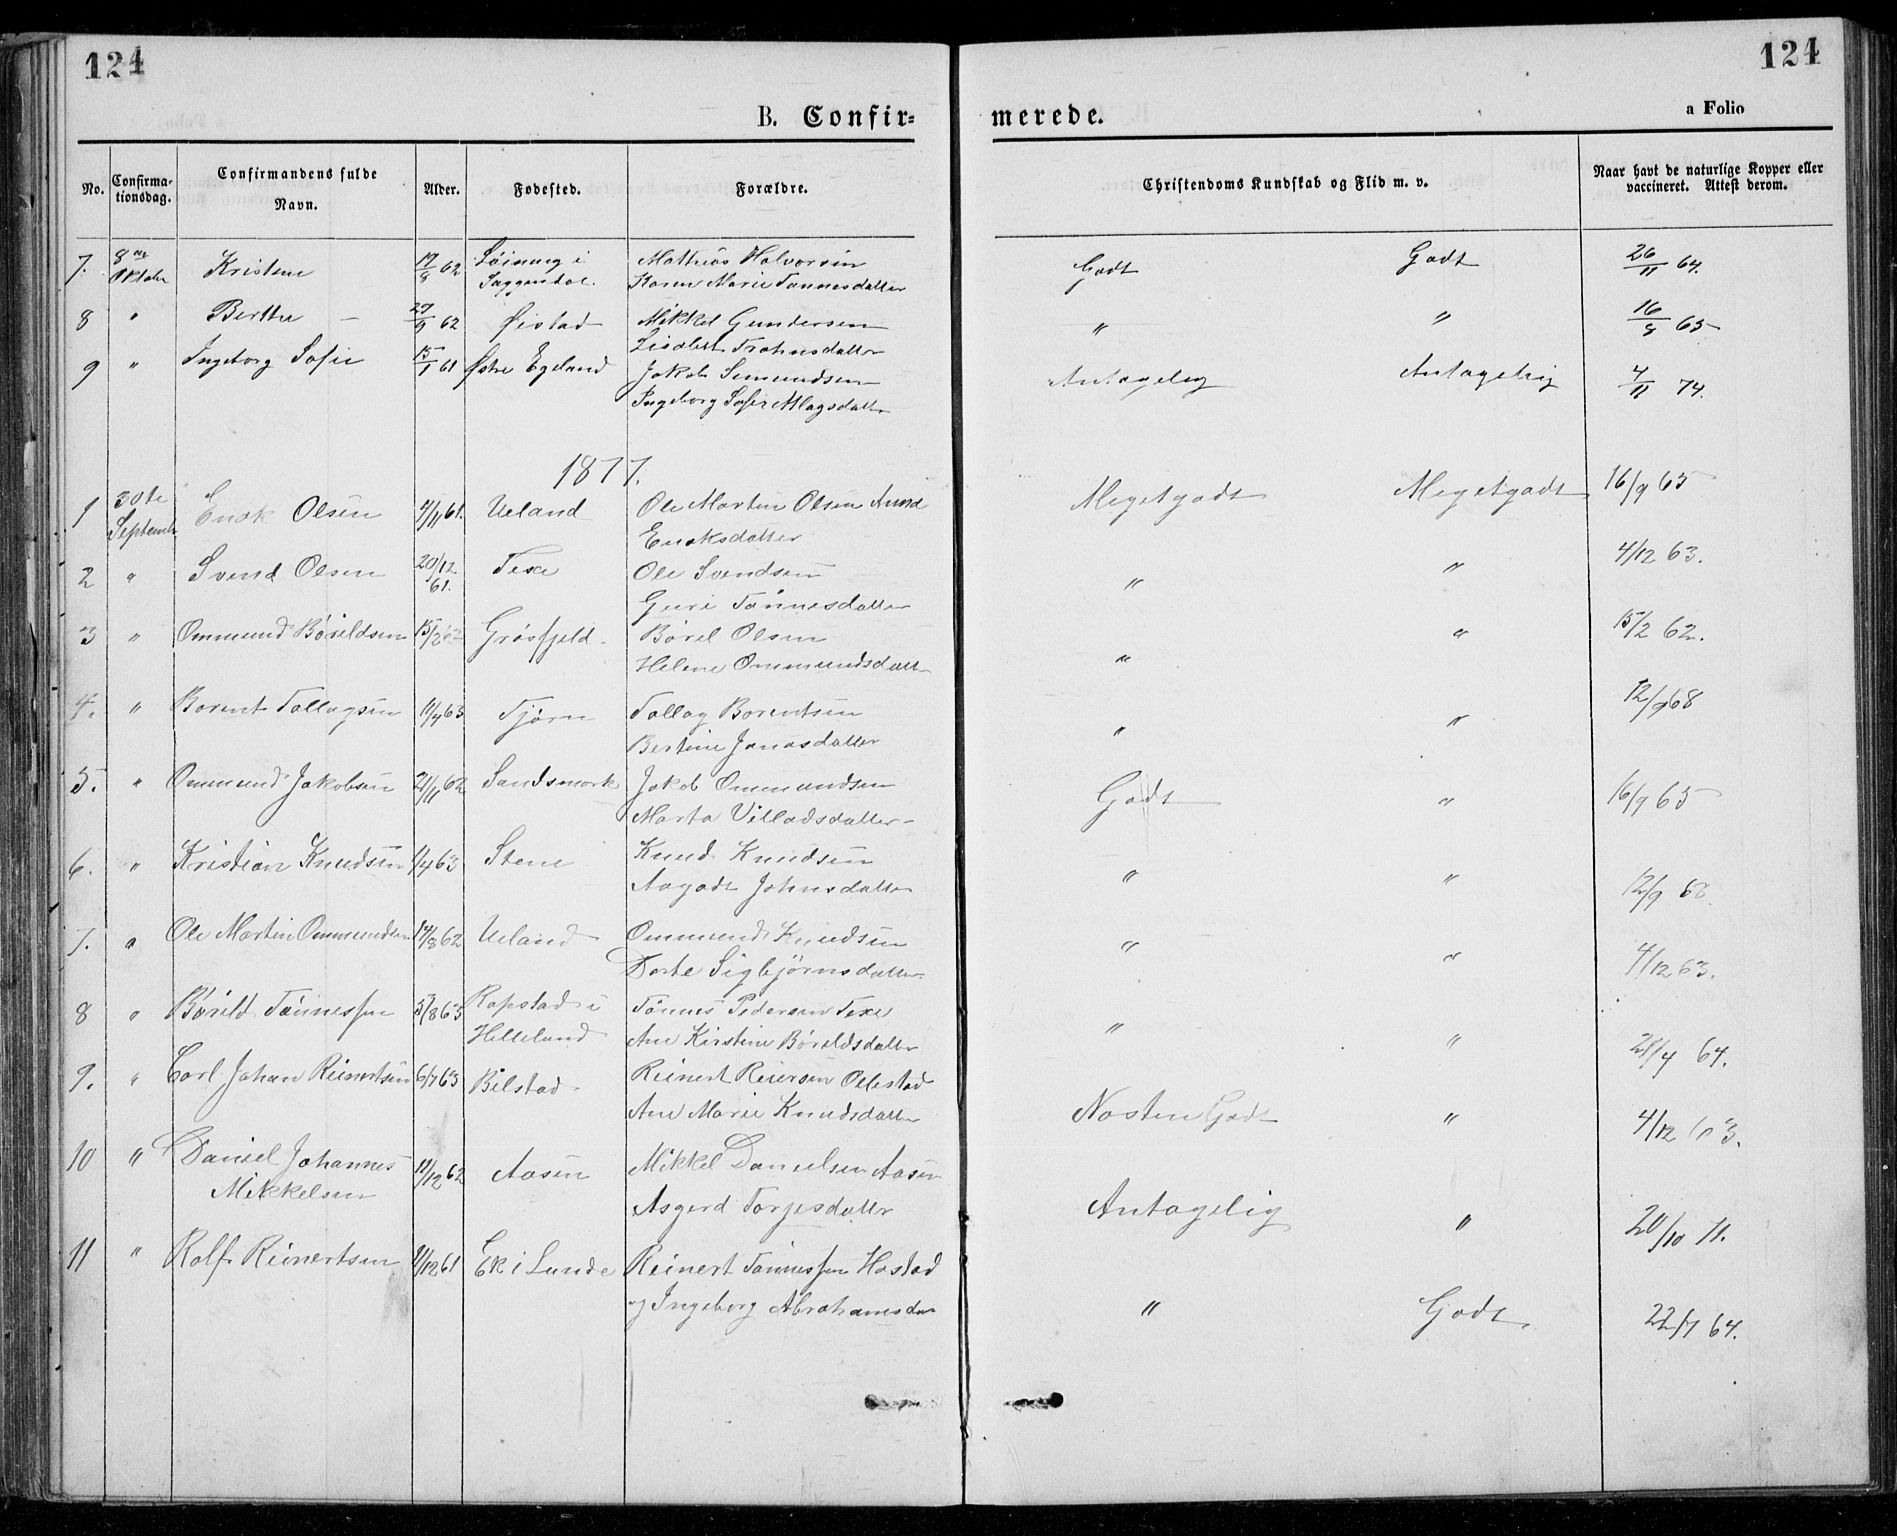 124
124
B. Confir=
merede.
a Folio
No.
Confirma-
tionsdag.
Confirmandens fulde
Navn.
Alder.
Fødested.
Forældre.
Christendoms Kundskab og Flid m. v.
Naar havt de naturlige Kopper eller
vaccineret. Attest derom.
7. 8de Kristine 62 i Mathias Halvorsen Godt Godt 26/11 64.
Oktober Karen Marie Tønnesdatter
8 " Berthe — 62 Øistad Mikkel Gundersen " " 16/9 65
Lisabet Trohnsdatter
9 " Ingeborg Sofie 15/1 61 Østre Egeland Jakob Simundsen Antagelig Antagelig 4/11 74.
Ingeborg Sofie Aslagsdatter
1877.
1 30te Enok Olsen 61. Ueland Ole Martin Olsen Anna Megetgodt Megetgodt 16/9 65
September Enoksdatter
2 " Svend Olsen 20/12 Texe Ole Svendsen " " 4/12 63.
61. Guri Tønnesdatter
3 " Ommund Børildsen 15/2 62 Grøsfjeld. Børel Olsen " " 15/2 62.
Helene Ommundsdatter
4. " Borent Tollagsen 11/4 63 Tjørn Tollag Borentsen " " 12/9 68
Bertine Jonasdatter
5. " Ommund Jakobsen 21/11 62 Sandsmork Jakob Ommundsen Godt " 16/9 65
Marta Villadsdatter
6. " Kristian Knudsen 1/4 63 Stene Knud Knudsen " " 12/9 63.
Aagode Johnsdatter
7. " Ole Martin Ommundsen 14/8 62 Ueland Ommund Knudsen " " 4/12 63.
Dorte Sigbjørnsdatter
8 " Børild Tønnessen 5/8 63 Ropstad i Tønnes Pedersen Texe " " 21/4 64.
Helleland Ane Kirstine Børildsdatter
9. " Carl Johan Reinertsen 6/7 63 Bilstad Reinert Reiersen Ollestad Nosten Godt " 4/12 63.
Ane Marie Knudsdatter
10 " Daniel Johannes 12/12 62 Aasen Mikkel Danielsen Aasen Antagelig " 20/10 71.
Mikkelsen Asgerd Torjesdatter
11 " Rolf Reinertsen 11/12 61 Ek i Lunde Reinert Tønnessen Hostad " Godt. 22/7 64.
og Ingeborg Abrahamsdtr